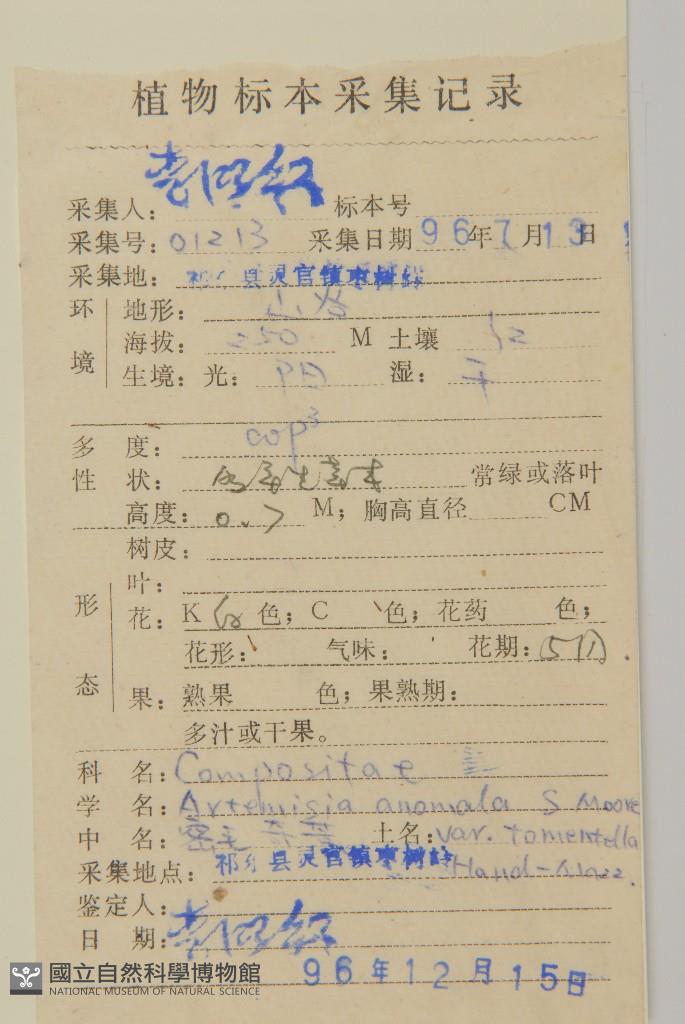 植物标本采集记录
采集人： 标本号
采集号：01213 采集日期96年7月13日
采集地：祁东县灵官镇枣树岭
环境 地形：山谷
海拔：250 M 土壤 红
生境：光：阳 湿：干
多 度：cop³
性 状：多年生草本 常绿或落叶
高度：0.7 M；胸高直径 CM
树皮：
形态 叶：
花：K 红色；C 色；花药 色；
花形： 气味： 花期：5月.
果：熟果 色；果熟期：
多汁或干果。
科 名：Compositae
学 名：Artemisia anomala S Moore
中 名：密毛奇蒿 土名：var. tomentella
采集地点：祁东县灵官镇枣树岭 Hand-Mazz.
鉴定人：
日 期：
96年12月15日
國立自然科學博物館
NATIONAL MUSEUM OF NATURAL SCIENCE